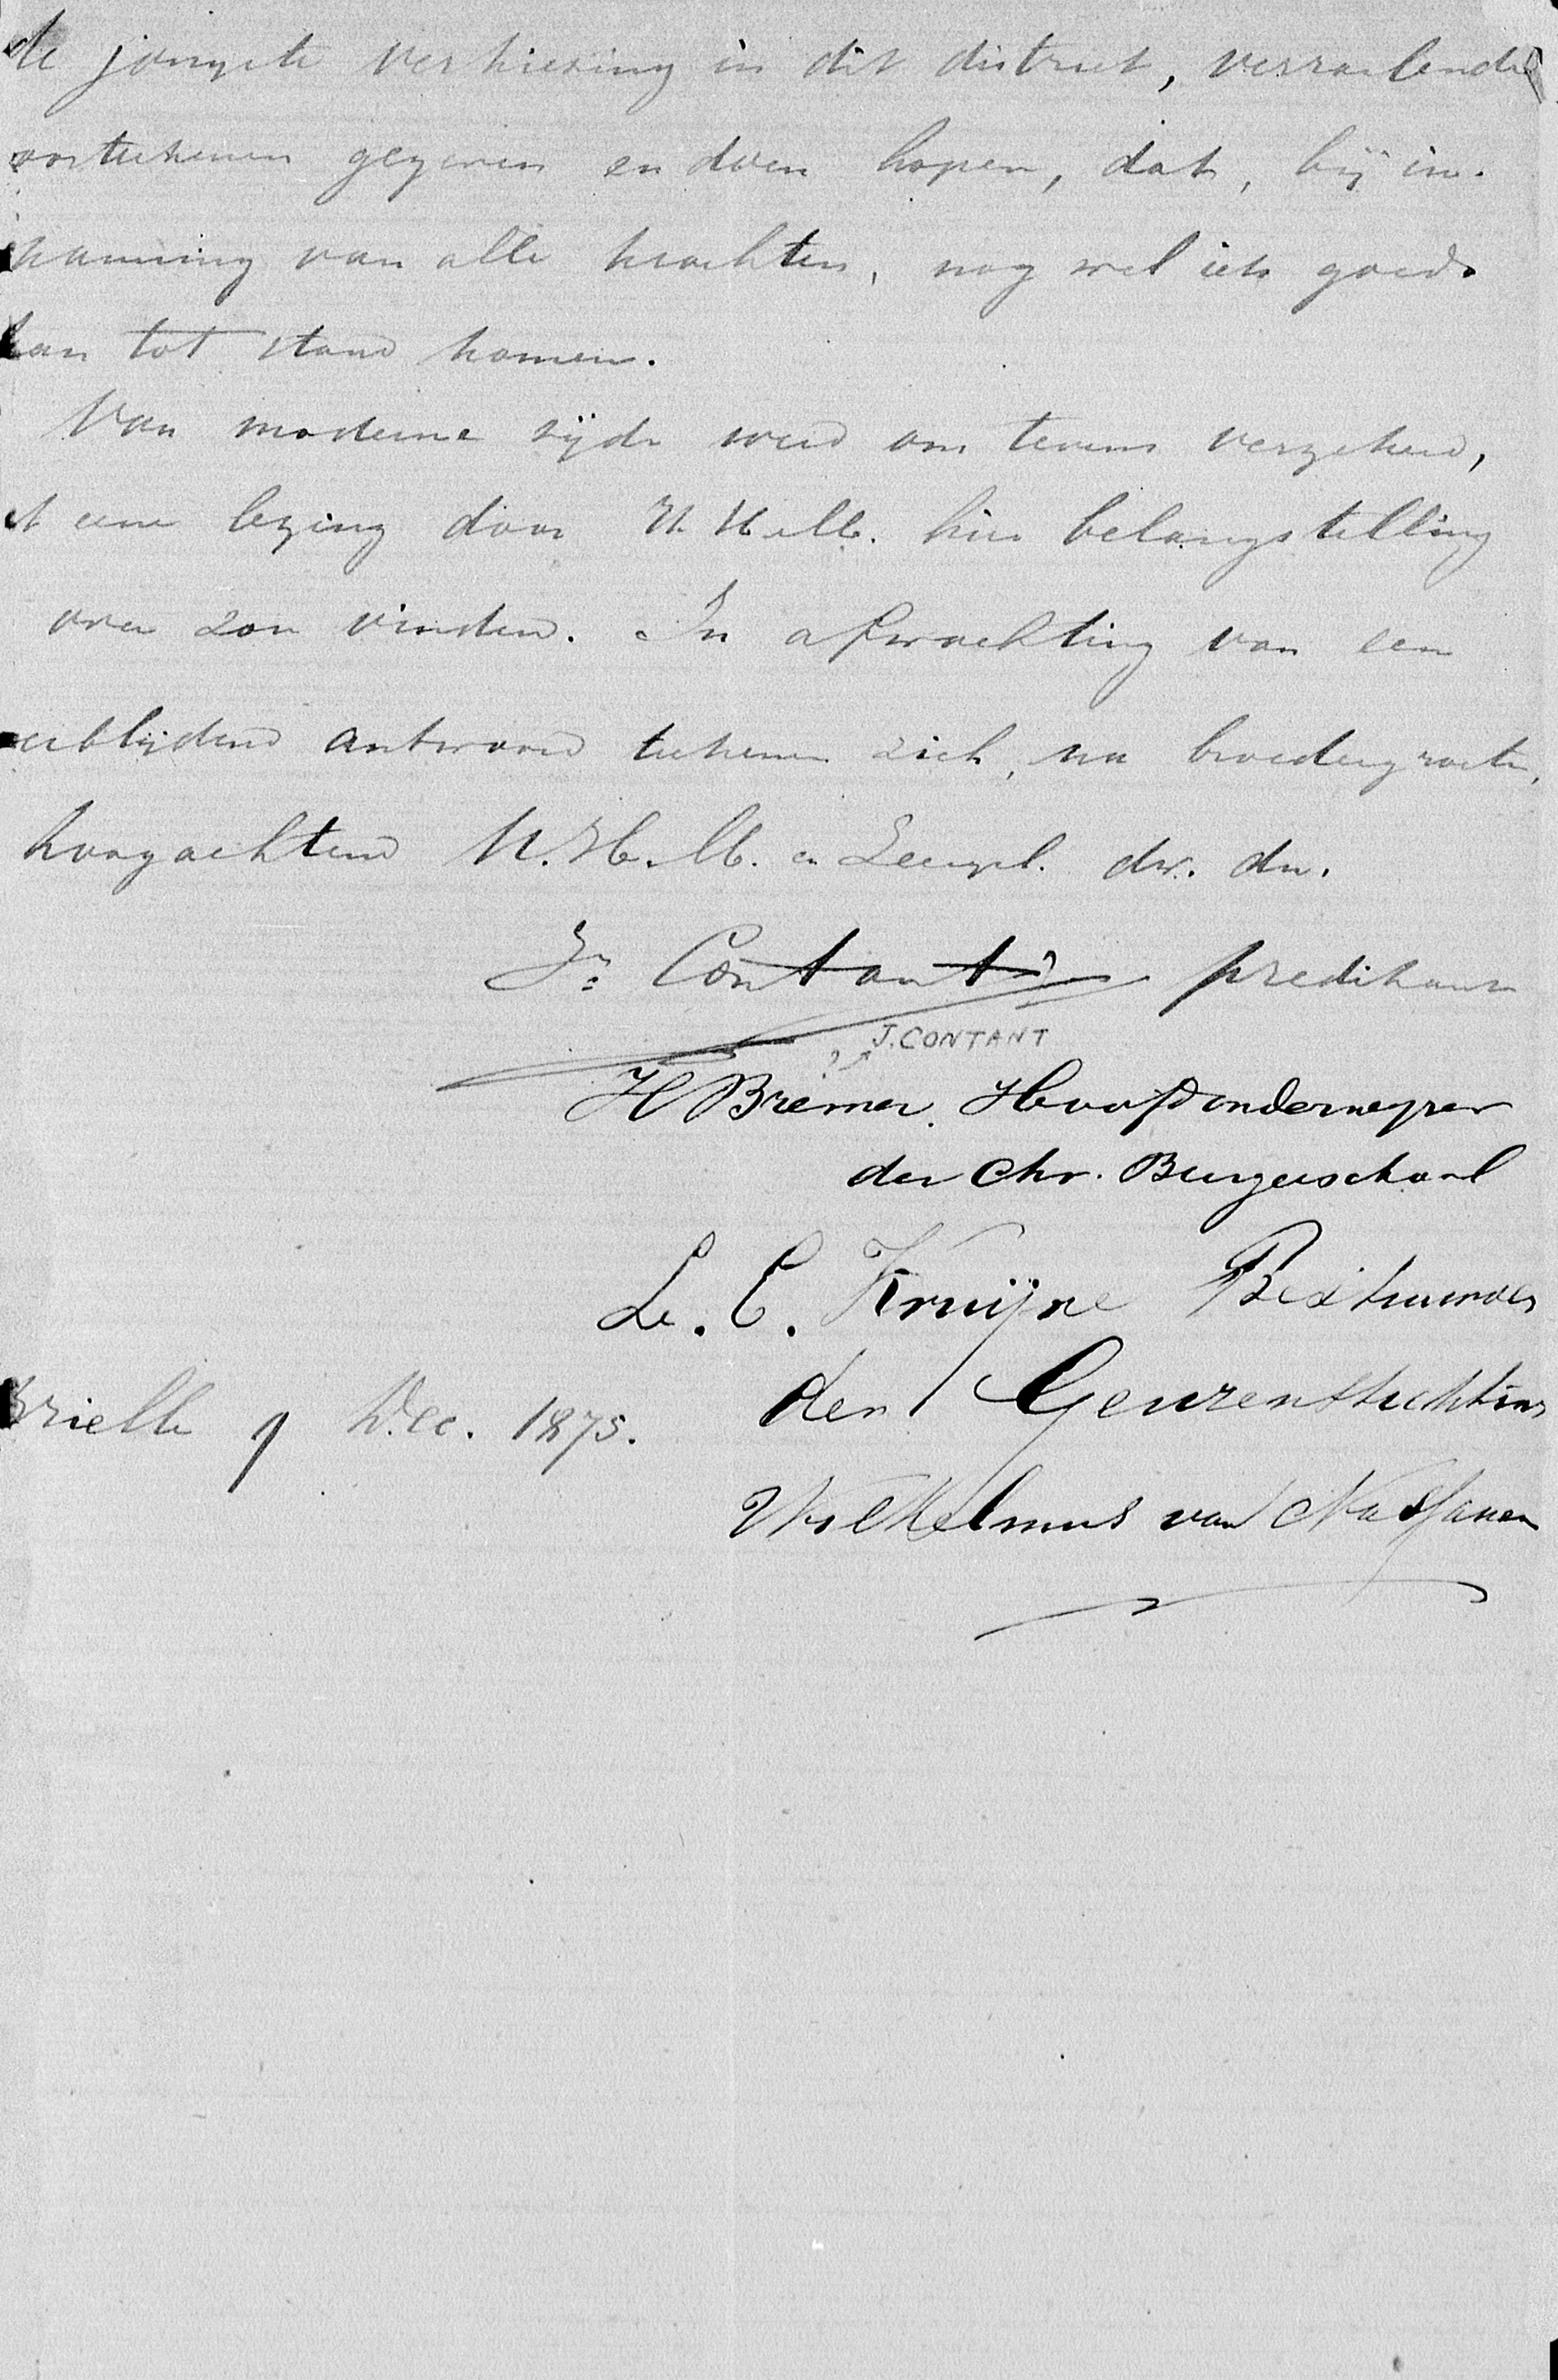 de jongste verkiezing in dit district, verrassende
voorteekenen gegeven en doen hopen, dat, bij in-
spanning van alle krachten, nog wel iets goeds
kan tot stand komen.
Van moderne zijde werd ons tevens verzekerd,
dat eene lezing door U. HEdl. hier belangstelling
zou vinden. In afwachting van een
verblijdend antwoord teekenen zich, na broedergroete,
hoogachtend U.HEd. en Zeergel. dw. dn.
Jn. Contant predikant
? J. CONTANT
H Bremer. Hoofdonderwijzer
der Chr. Burgerschool
L. C. Kruijne Bestuurder
der Geuzenstichting
Wilhelmus van Nassauen
Brielle 9 Dec. 1875.